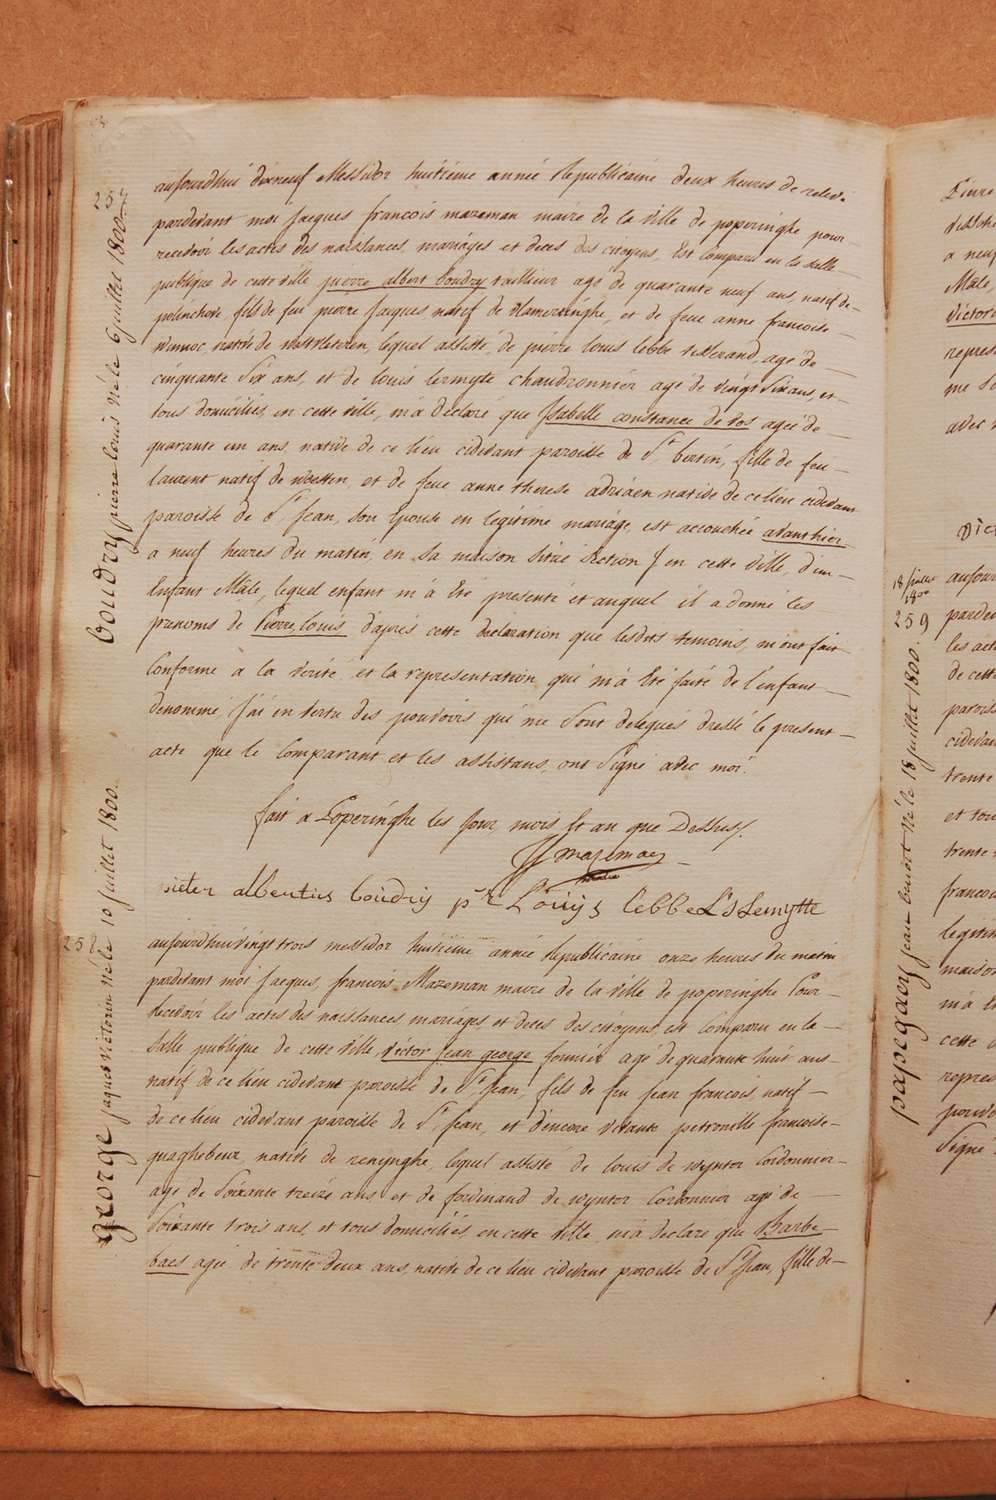 257
boudry pierre louis né le 6 juillet 1800.
aujourdhui dixneuf Messidor huitieme année Republicaine deux heures de relevé
pardevant moi Jacques francois mazeman maire de la ville de poperinghe pour
recevoir les actes des naissances, mariages et deces des citoyens, Est comparu en la salle
publique de cette ville pierre albert boudry tailleur agé de quarante neuf ans, natif de
polinchove, fils de feu pierre Jacques natif de vlamertinghe, et de feue anne francoise
winnoc, native de westvleteren, lequel assisté, de pierre louis lebbe tisserand agé de
cinquante six ans, et de louis lermyte chaudronnier agé de vingt six ans, et
tous domiciliés en cette ville, m'a declaré que Isabelle constance de vos ageé de
quarante un ans native de ce lieu cidevant paroisse de St bertin, fille de feu
laurent natif de woesten, et de feue anne therese adriaen native de ce lieu cidevant
paroisse de St Jean, son epouse en legitime mariage, est accouchée avanthier
a neuf heures du matin, en sa maison sitúé section f en cette ville, d'un
Enfant Mâle, lequel enfant m'a été presenté et auquel il a donné les
prenoms de Pierre, louis d'apres cette declaration que lesdits temoins, m'ont fait
Conforme a la verité, et la representation, qui m'a été faite de l'enfant
denommé, j'ai en vertu des pouvoirs qui me sont delegués dressé le present
acte que le Comparant et les assistans, ont signé avec moi.
fait a Poperinghe les Jour, mois Et an que Dessus.
JJ mazeman
maire
pieter albertus boudry pr Louijs Lebbe Ls Lemytte
258
george jaques victorin né le 10 juillet 1800.
aujourdhui vingt trois messidor huitieme année Republicaine onze heures du matin
pardevant moi Jacques, francois Mazeman maire de la ville de poperinghe Pour
Recevoir les actes des naissances mariages et deces des citoyens, est Comparu en la
salle publique de cette ville, victor Jean george fournier agé de quarante huit ans
natif de ce lieu cidevant paroisse de St Jean, fils de feu Jean francois, natif
de ce lieu cidevant paroisse de St Jean, et d'encore vivante petronille francoise
quaghebeur, native de renynghe, lequel assisté de louis de wynter Cordonnier
agé de soixante treize ans et de ferdinand de wynter Cordonnier agé de
soixante trois ans, et tous domiciliés, en cette ville, m'a declaré que Barbe
baes ageé de trente deux ans, native de ce lieu cidevant paroisse de St Jean, fille de
papegaey jean benoit né le 18 juillet 1800.
18 juillet
1800
259